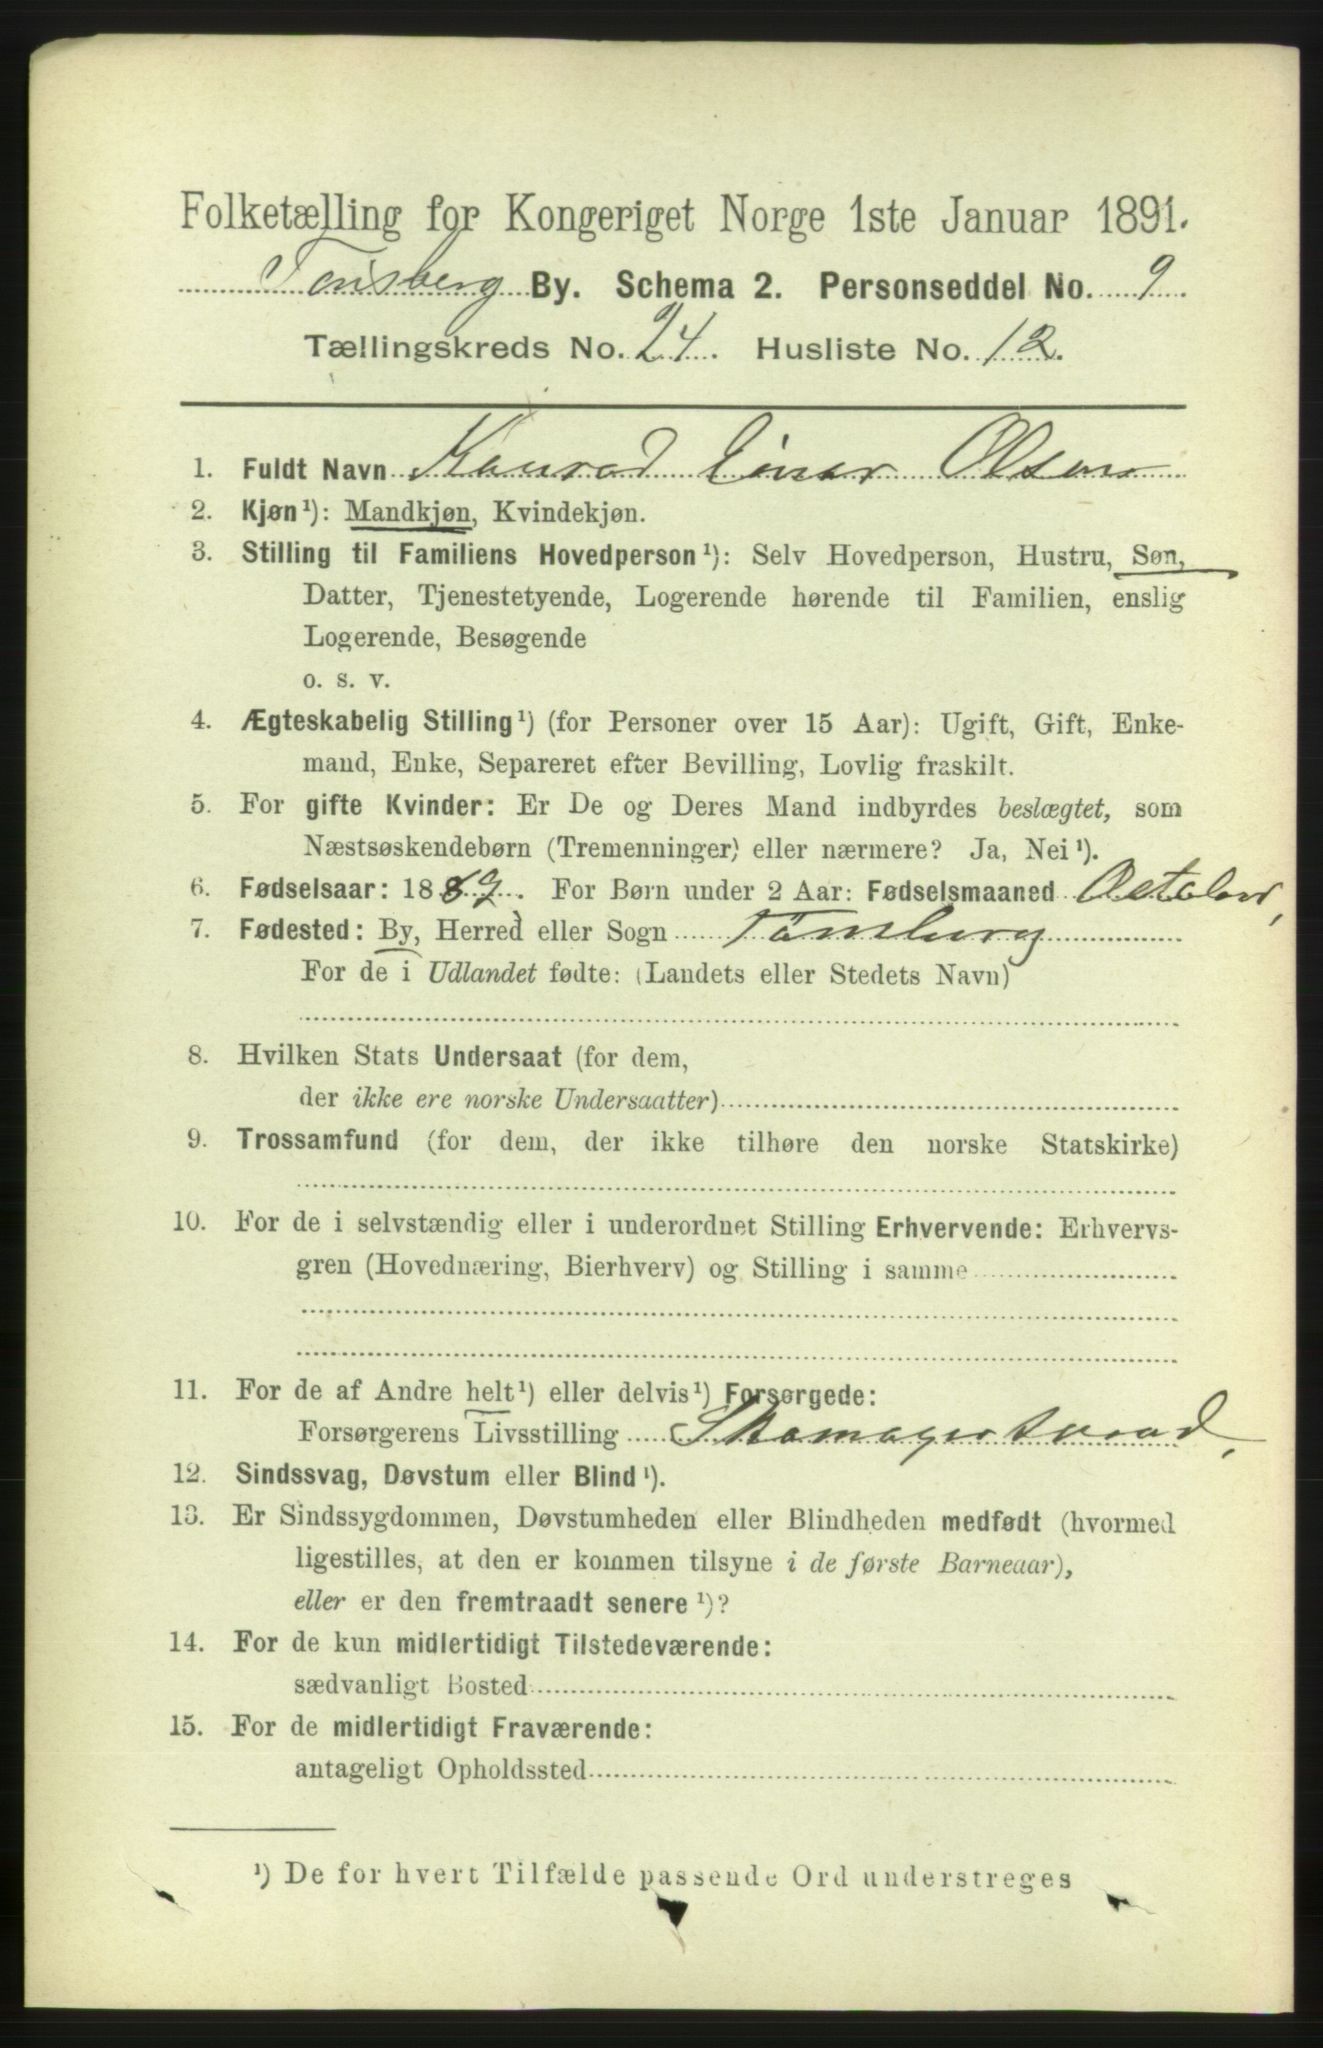 Folketælling for Kongeriget Norge 1ste Januar 1891.
Tønsberg By. Schema 2. Personseddel No. 9.
Tællingskreds No. 24. Husliste No. 12.
1. Fuldt Navn Konrad Einar Olsen
2. Kjøn¹): Mandkjøn, Kvindekjøn.
3. Stilling til Familiens Hovedperson¹): Selv Hovedperson, Hustru, Søn,
Datter, Tjenestetyende, Logerende hørende til Familien, enslig
Logerende, Besøgende
o. s. v.
4. Ægteskabelig Stilling¹) (for Personer over 15 Aar): Ugift, Gift, Enke-
mand, Enke, Separeret efter Bevilling, Lovlig fraskilt.
5. For gifte Kvinder: Er De og Deres Mand indbyrdes beslægtet, som
Næstsøskendebørn (Tremenninger) eller nærmere? Ja, Nei¹).
6. Fødselsaar: 1889. For Børn under 2 Aar: Fødselsmaaned October,
7. Fødested: By, Herred eller Sogn Tønsberg
For de i Udlandet fødte: (Landets eller Stedets Navn)
8. Hvilken Stats Undersaat (for dem,
der ikke ere norske Undersaatter)
9. Trossamfund (for dem, der ikke tilhøre den norske Statskirke)
10. For de i selvstændig eller i underordnet Stilling Erhvervende: Erhvervs-
gren (Hovednæring, Bierhverv) og Stilling i samme
11. For de af Andre helt¹) eller delvis¹) Forsørgede:
Forsørgerens Livsstilling Skomagersvend,
12. Sindssvag, Døvstum eller Blind¹).
13. Er Sindssygdommen, Døvstumheden eller Blindheden medfødt (hvormed
ligestilles, at den er kommen tilsyne i de første Barneaar),
eller er den fremtraadt senere¹)?
14. For de kun midlertidigt Tilstedeværende:
sædvanligt Bosted
15. For de midlertidigt Fraværende:
antageligt Opholdssted
¹) De for hvert Tilfælde passende Ord understreges